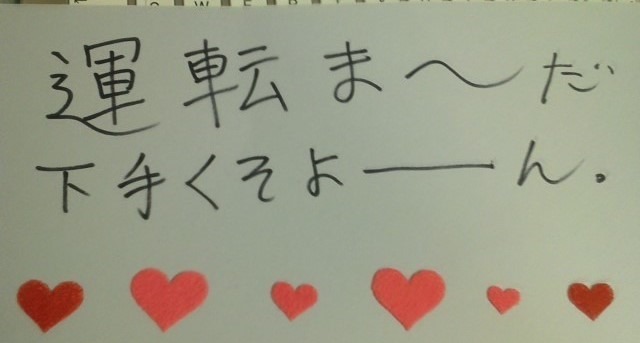 運転ま〜だ
下手くそよーーん。